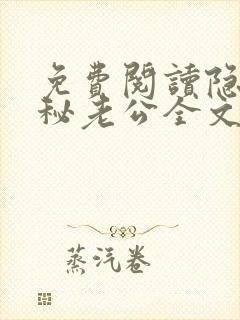 免費閱讀隐
秘老公全文
蒸汽卷